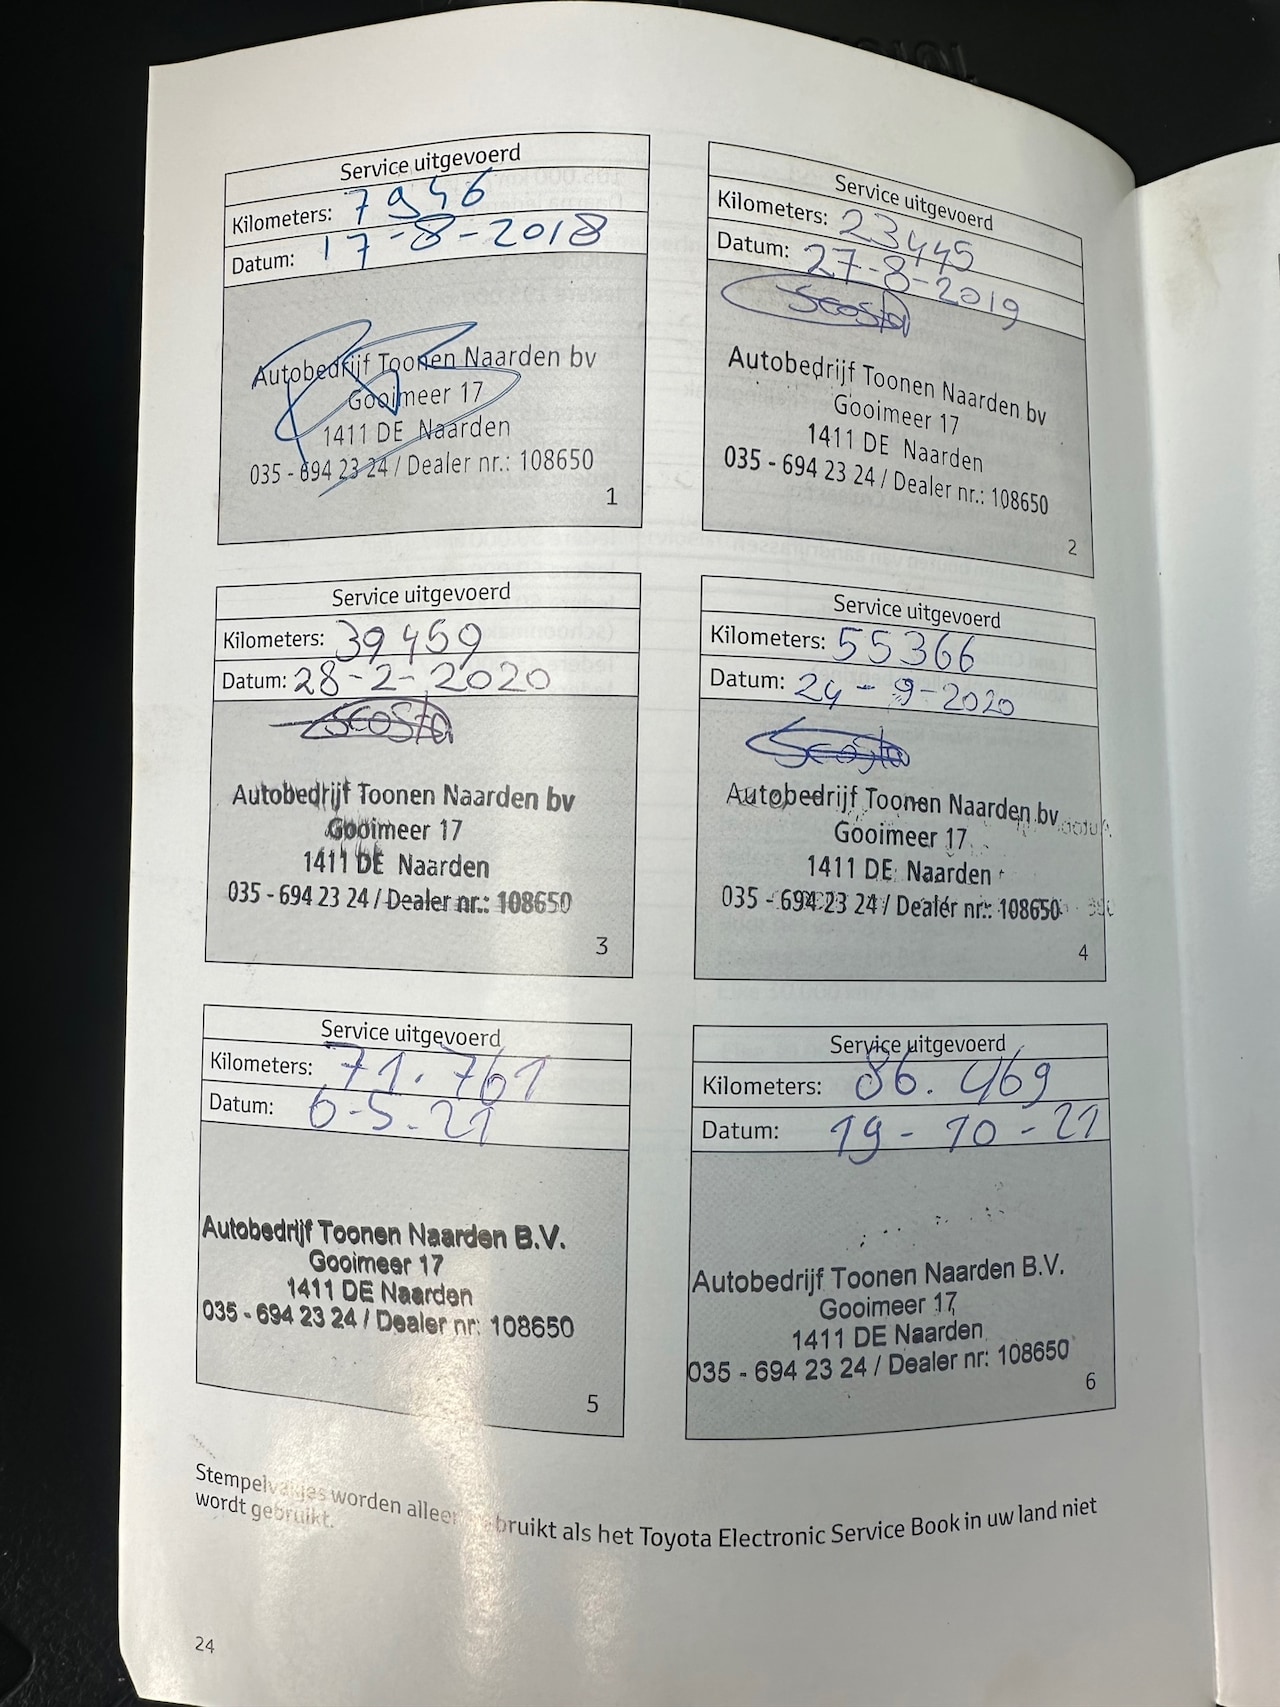 Service uitgevoerd
Kilometers: 7946
Datum: 17-8-2018
Autobedrijf Toonen Naarden bv
Gooimeer 17
1411 DE Naarden
035 - 694 23 24 / Dealer nr.: 108650
1
Service uitgevoerd
Kilometers: 23445
Datum: 27-8-2019
Autobedrijf Toonen Naarden bv
Gooimeer 17
1411 DE Naarden
035 - 694 23 24 / Dealer nr.: 108650
2
Service uitgevoerd
Kilometers: 39459
Datum: 28-2-2020
Autobedrijf Toonen Naarden bv
Gooimeer 17
1411 DE Naarden
035 - 694 23 24 / Dealer nr.: 108650
3
Service uitgevoerd
Kilometers: 55366
Datum: 24-9-2020
Autobedrijf Toonen Naarden bv
Gooimeer 17
1411 DE Naarden
035 - 694 23 24 / Dealer nr.: 108650
4
Service uitgevoerd
Kilometers: 71.761
Datum: 6-5.21
Autobedrijf Toonen Naarden B.V.
Gooimeer 17
1411 DE Naarden
035 - 694 23 24 / Dealer nr: 108650
5
Service uitgevoerd
Kilometers: 86.469
Datum: 19-10-21
Autobedrijf Toonen Naarden B.V.
Gooimeer 17
1411 DE Naarden
035 - 694 23 24 / Dealer nr: 108650
6
Stempelvakjes worden alleen gebruikt als het Toyota Electronic Service Book in uw land niet
wordt gebruikt.
24